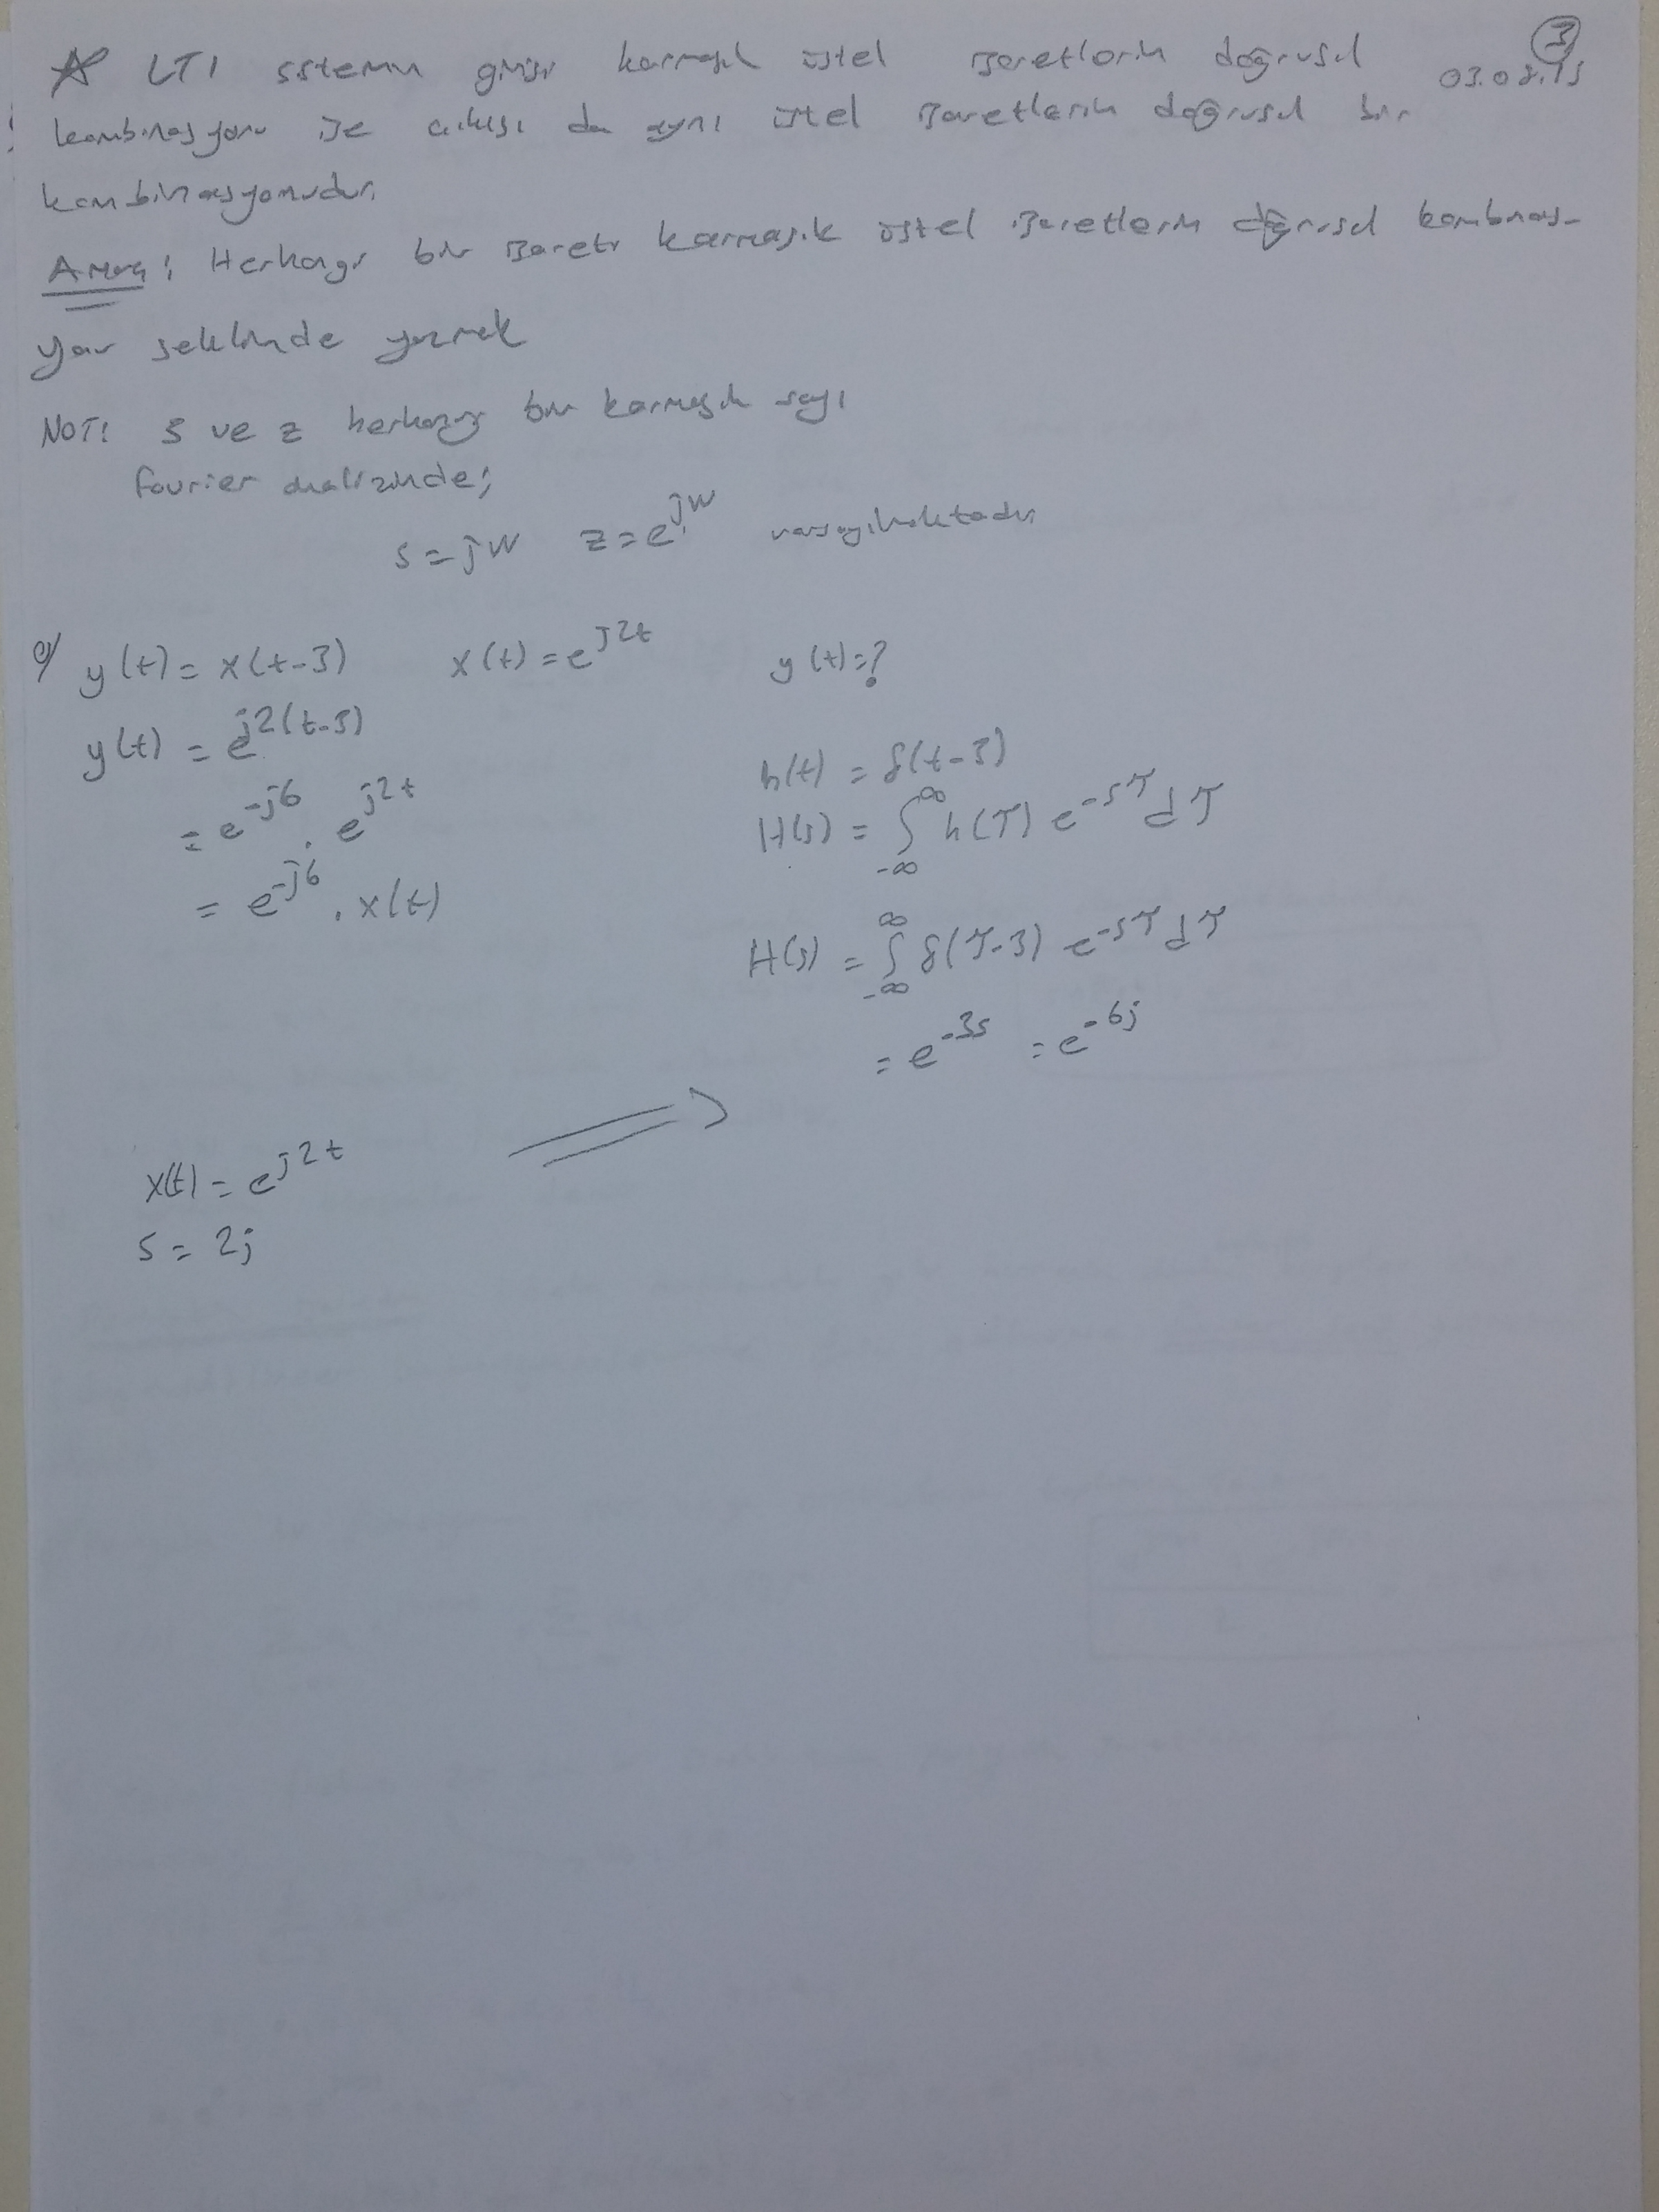 ③
03.08.15
☆ LTI sistemin girişi karmaşık üstel işaretlerin doğrusal
kombinasyonu ise çıkışı da aynı üstel işaretlerin doğrusal bir
kombinasyonudur.
Amaç: Herhangi bir işareti karmaşık üstel işaretlerin doğrusal kombinas-
yonu şeklinde yazmak
NOT: s ve z herhangi bir karmaşık sayı
Fourier analizinde;
s = jw z = e^jw varsayılmaktadır
y(t) = x(t-3) x(t) = e^j2t y(t) = ?
y(t) = e^j2(t-3)
= e^-j6 . e^j2t
= e^-j6 . x(t)
h(t) = δ(t-3)
H(s) = ∫_-∞^∞ h(τ) e^-sτ dτ
H(s) = ∫_-∞^∞ δ(τ-3) e^-sτ dτ
= e^-3s = e^-6j
x(t) = e^j2t ⇒
s = 2j